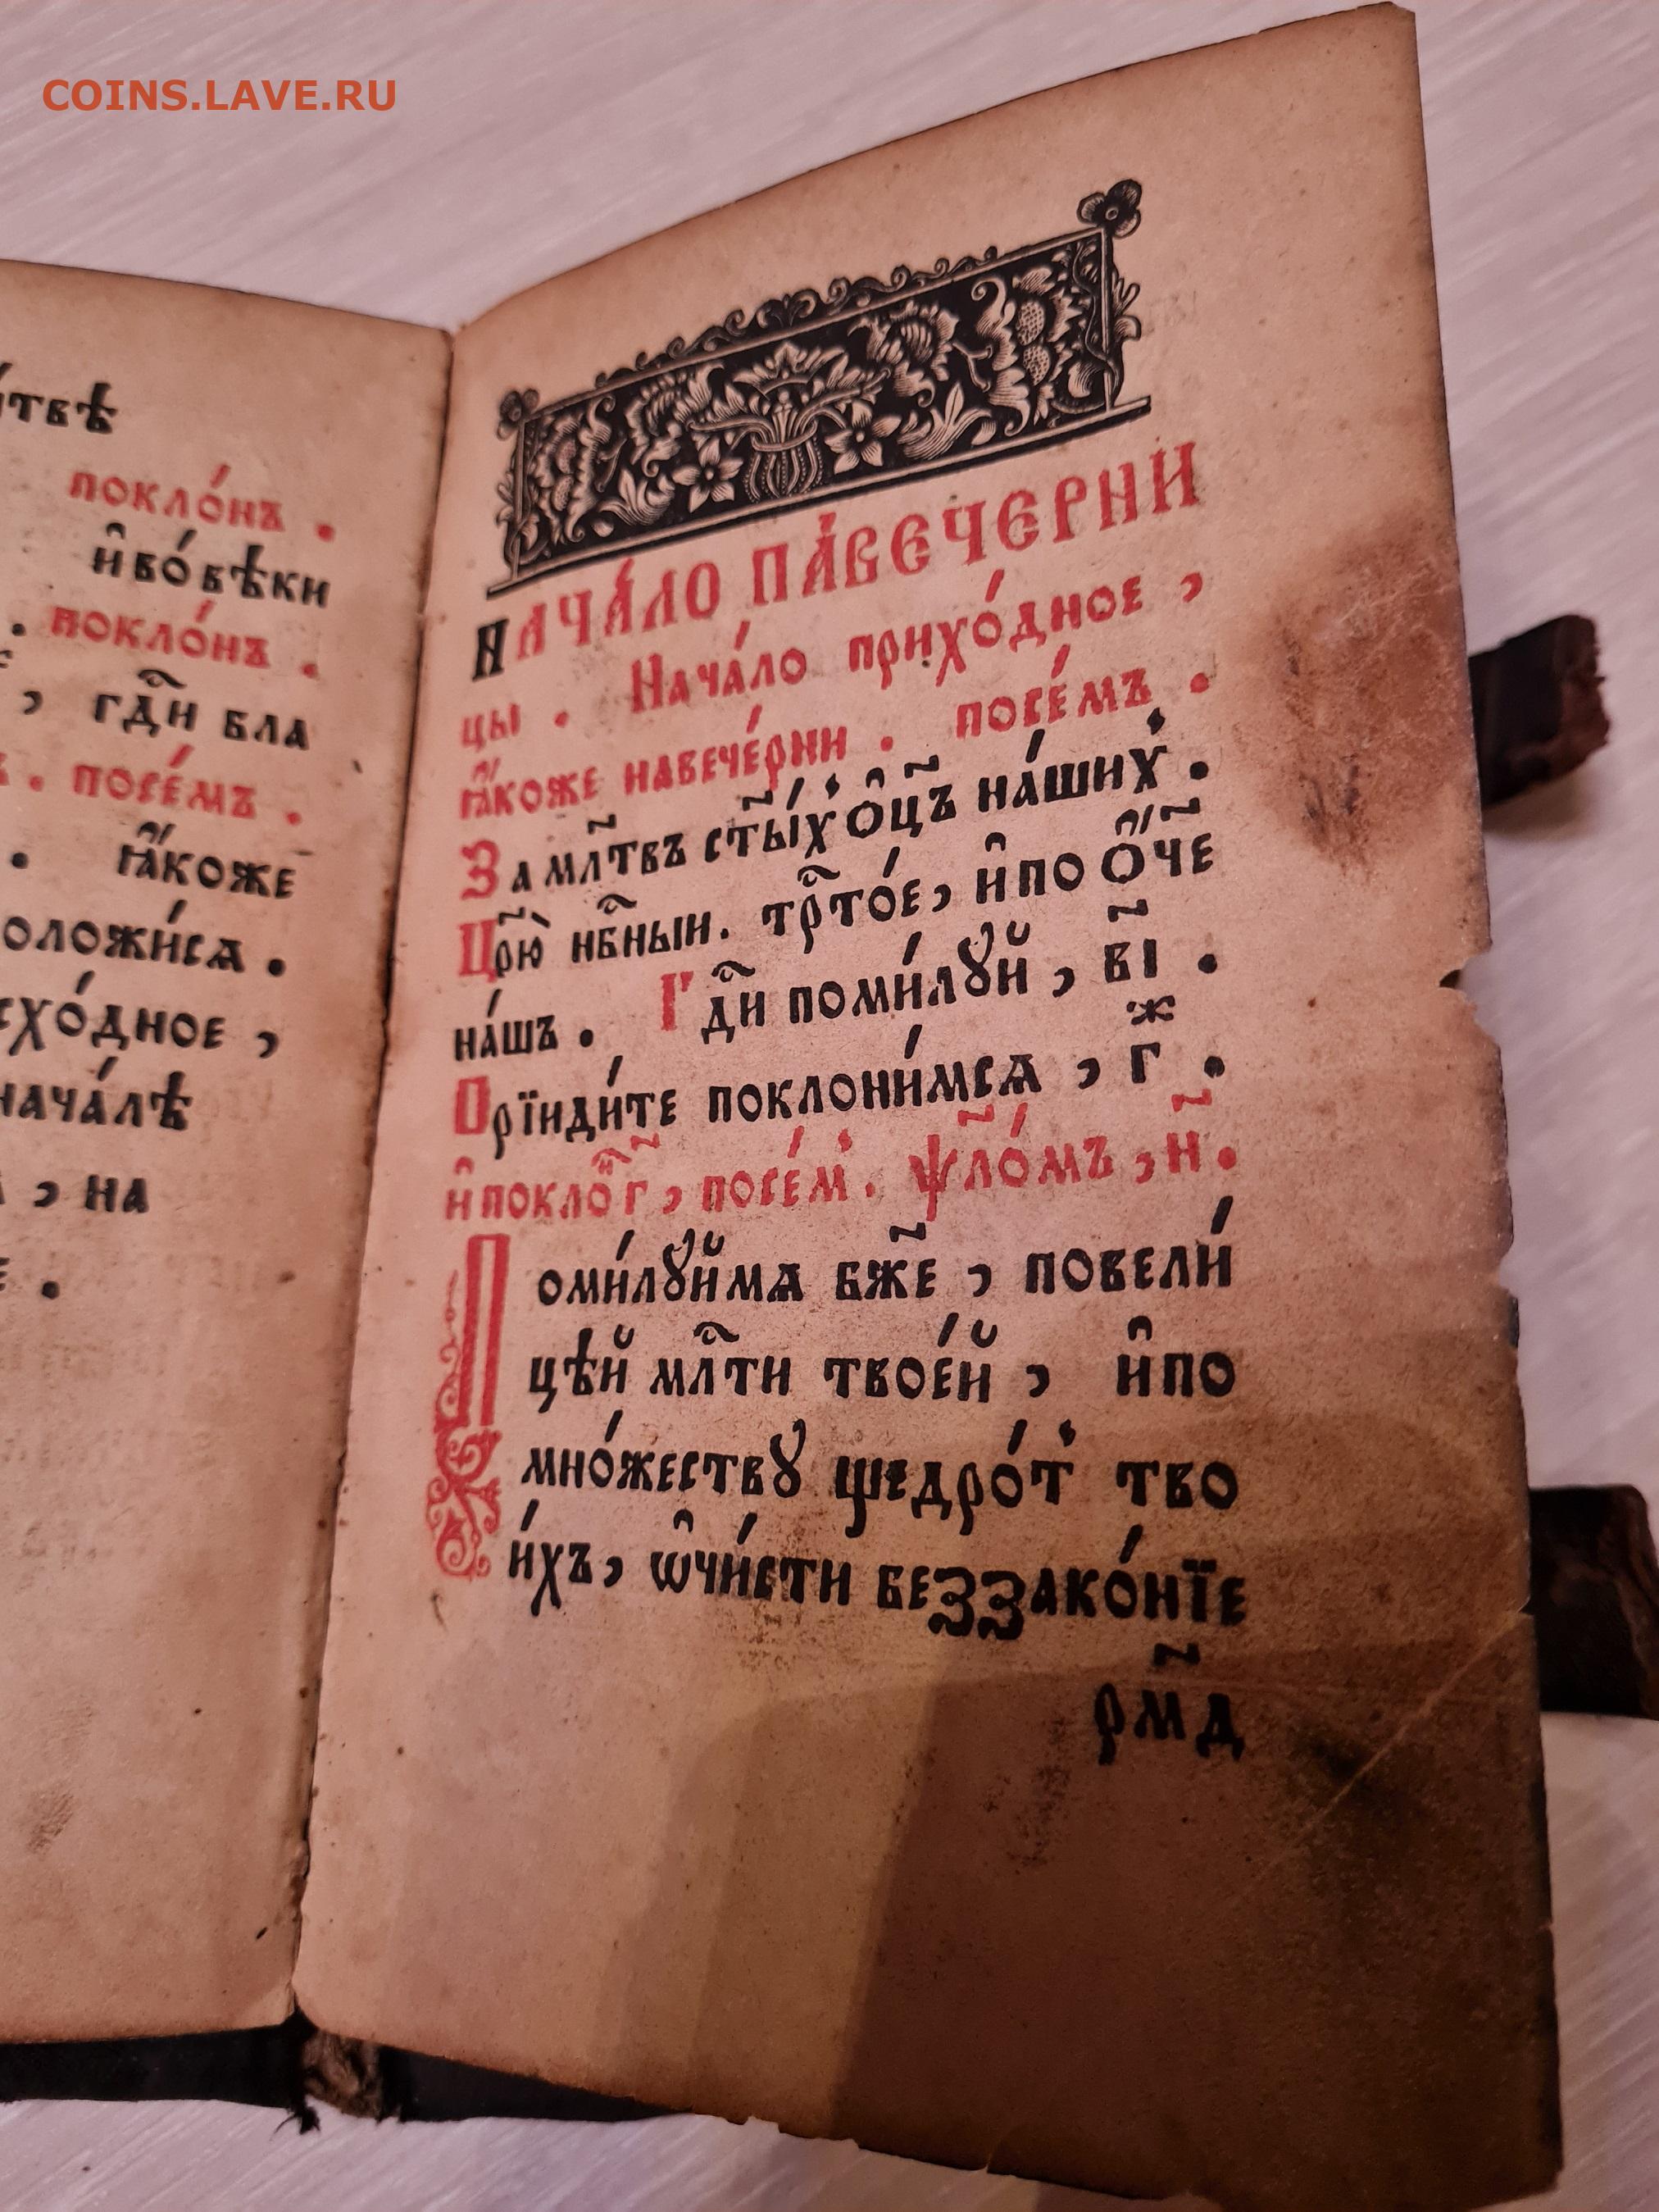 COINS.LAVE.RU
твѣ
покло́нъ .
и҆во́вѣки
. покло́нъ .
, гд҇и бла
. посе́мъ .
. ꙗ҆́коже
оложи́сѧ .
схо́дное ,
нача́лѣ
, на
е .
Нача́ло па́вечерни
цы . Нача́ло прихо́дное ,
ꙗ҆́коже навече́рни . посе́мъ .
За мл҃твъ ст҃ы́х̾ о҆ц҃ъ на́ших̾ .
Цр҃ю̀ нб҇ныи . тр҇то́е , и҆по ѻ҆́ч҃е
на́шъ . Гд҇и поми́лꙋй , в҃і .
Прїиди́те поклони́мсѧ , гⷤ .
и҆покло̑ⷩ г҃ , посе́м̾ . ѱл҃о́мъ , н҃ .
Поми́лꙋймѧ бж҃е , повели́
цѣй мл҇ти твое́й , и҆по
мно́жествꙋ щедро́т̾ тво
и́хъ , ѡ҆чи́сти беззако́нїе
рм҃д